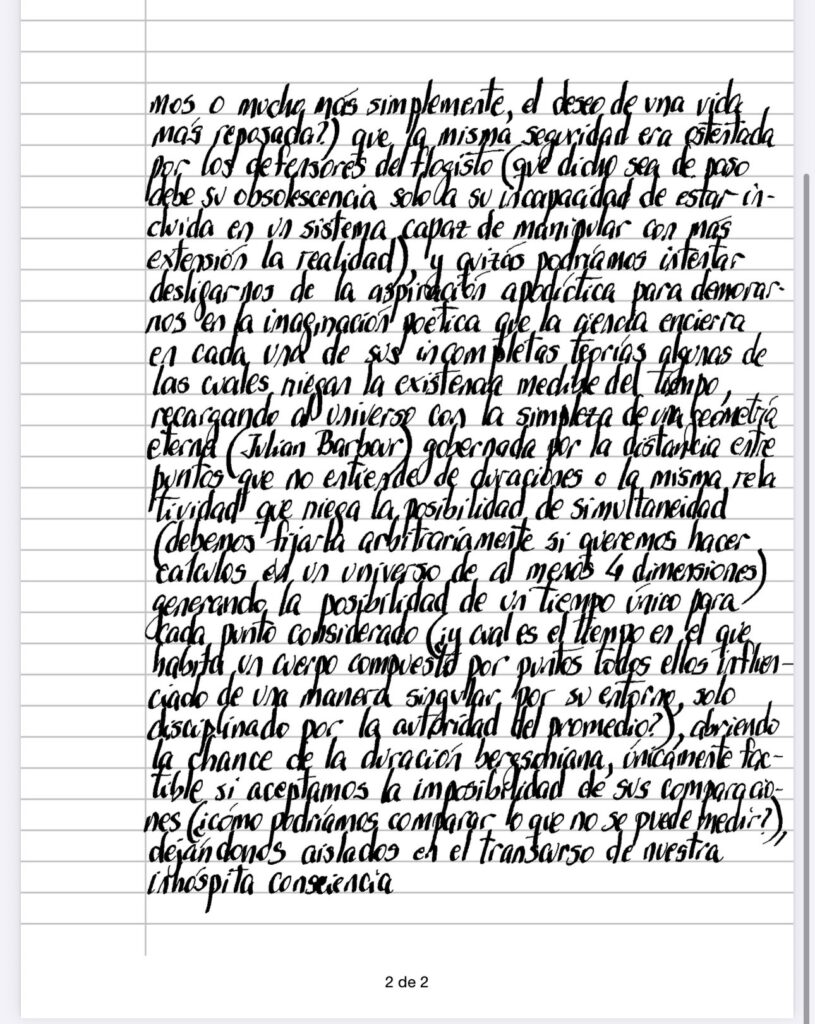 mos o mucho más simplemente, el deseo de una vida
más reposada?) que la misma seguridad era ostentada
por los defensores del flogisto (que dicho sea de paso
debe su obsolescencia solo a su incapacidad de estar in-
cluida en un sistema capaz de manipular con más
extensión la realidad), y quizás podríamos intentar
desligarnos de la aspiración apodíctica para demorar-
nos en la imaginación poética que la ciencia encierra
en cada una de sus incompletas teorías algunas de
las cuales niegan la existencia medible del tiempo,
recargando al universo con la simpleza de una geometría
eterna (Julian Barbour) gobernada por la distancia entre
puntos que no entiende de duraciones o la misma rela
tividad que niega la posibilidad de simultaneidad
(debemos fijarla arbitrariamente si queremos hacer
cálculos en un universo de al menos 4 dimensiones)
generando la posibilidad de un tiempo único para
cada punto considerado (¿y cual es el tiempo en el que
habita un cuerpo compuesto por puntos todos ellos influen-
ciado de una manera singular por su entorno, solo
disciplinado por la autoridad del promedio?), abriendo
la chance de la duración bergsoniana, únicamente fac-
tible si aceptamos la imposibilidad de sus comparacio-
nes (¿cómo podríamos comparar lo que no se puede medir?),
dejándonos aislados en el transcurso de nuestra
inhóspita consciencia
2 de 2